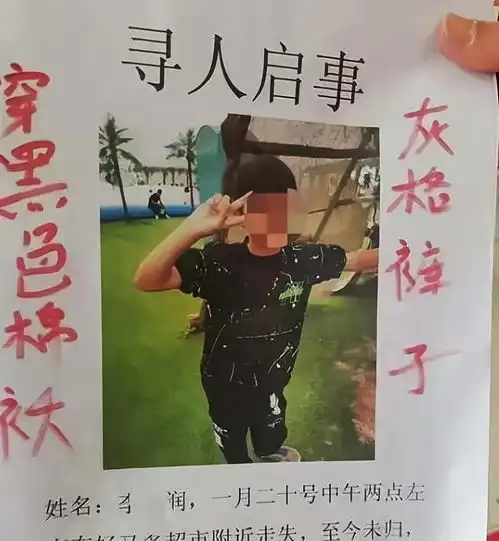 寻人启事
穿黑色棉袄
灰格裤子
姓名：李 润，一月二十号中午两点左
右在好又多超市附近走失，至今未归，